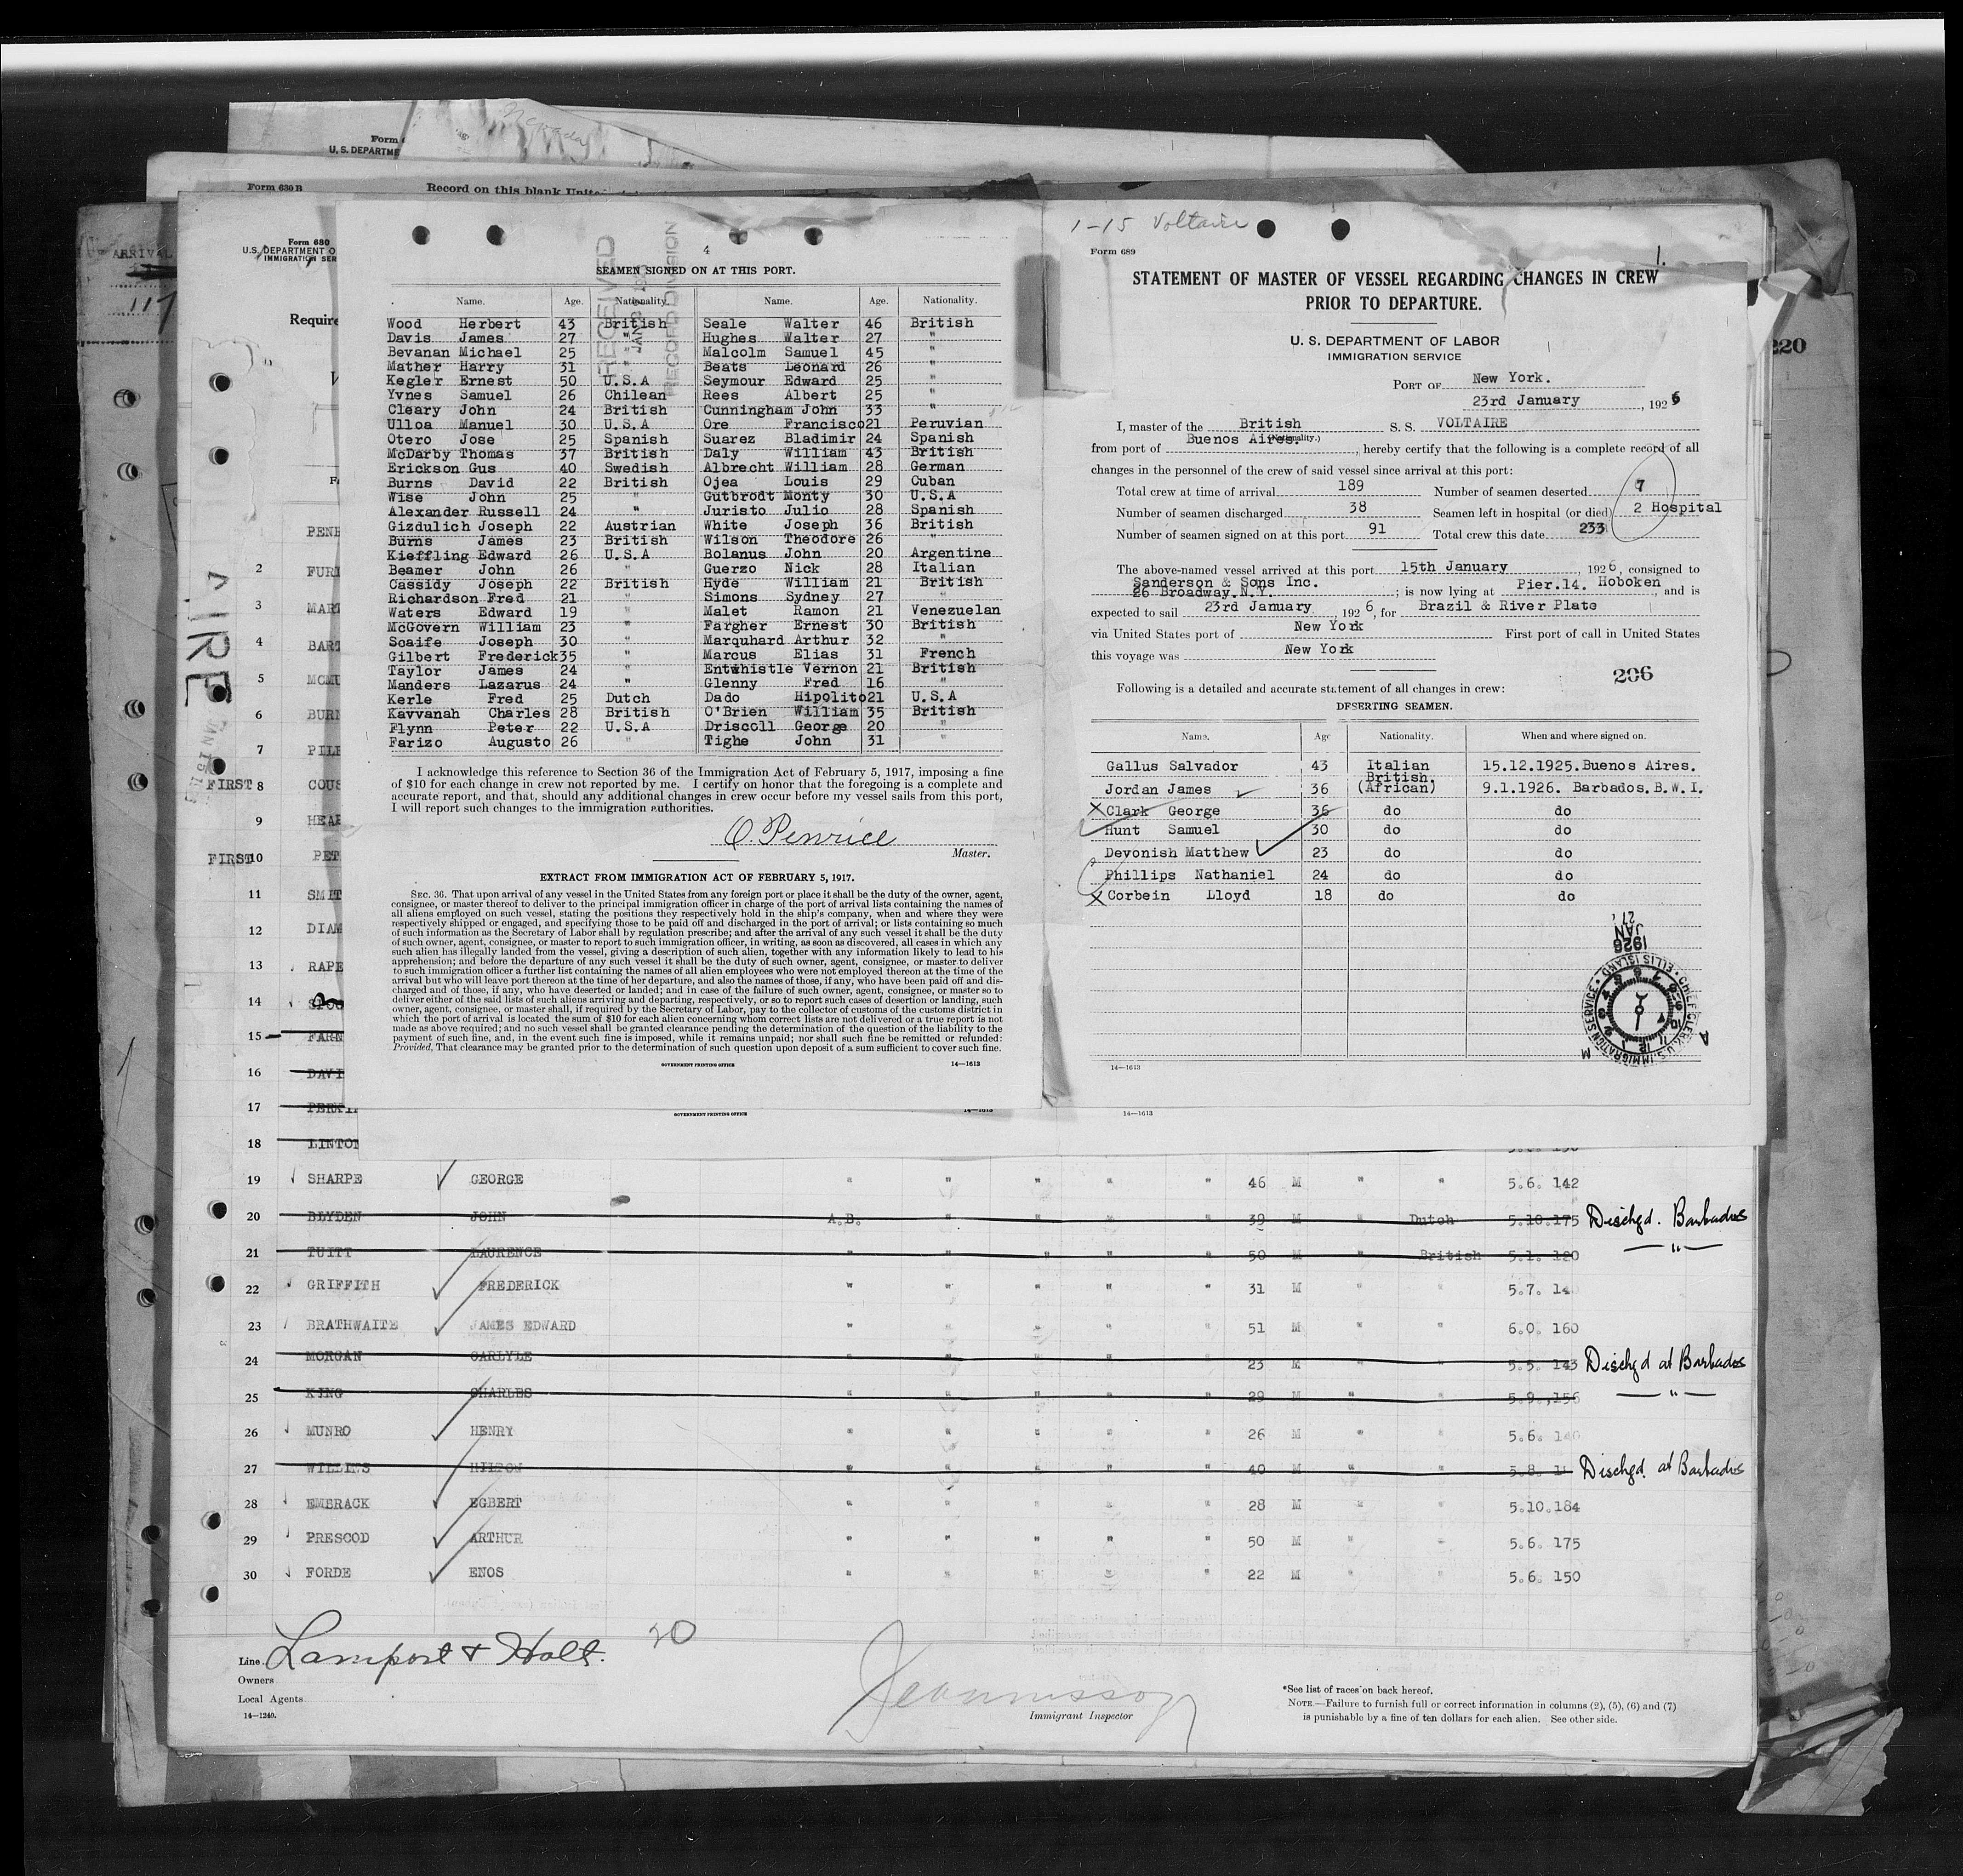 Form 630 B
Record on this blank
ARRIVAL
117
Form 680
U.S. DEPARTMENT O
IMMIGRATION SER
Require
4
SEAMEN SIGNED ON AT THIS PORT.
RECEIVED
RECORD DIVISION
Name. Age. Nationality. Name. Age. Nationality.
Wood Herbert 43 British Seale Walter 46 British
Davis James 27 " Hughes Walter 27 "
Bevanan Michael 25 " Malcolm Samuel 45 "
Mather Harry 31 " Beats Leonard 26 "
Kegler Ernest 50 U.S.A Seymour Edward 25 "
Yvnes Samuel 26 Chilean Rees Albert 25 "
Cleary John 24 British Cunningham John 33 "
Ulloa Manuel 30 U.S.A Ore Francisco 21 Peruvian
Otero Jose 25 Spanish Suarez Bladimir 24 Spanish
McDarby Thomas 37 British Daly William 43 British
Erickson Gus 40 Swedish Albrecht William 28 German
Burns David 22 British Ojea Louis 29 Cuban
Wise John 25 " Gutbrodt Monty 30 U.S.A
Alexander Russell 24 " Juristo Julio 28 Spanish
Gizdulich Joseph 22 Austrian White Joseph 36 British
Burns James 23 British Wilson Theodore 26 "
Kieffling Edward 26 U.S.A Bolanus John 20 Argentine
Beamer John 26 " Guerzo Nick 28 Italian
Cassidy Joseph 22 British Hyde William 21 British
Richardson Fred 21 " Simons Sydney 27 "
Waters Edward 19 " Malet Ramon 21 Venezuelan
McGovern William 23 " Fargher Ernest 30 British
Scaife Joseph 30 " Marquhard Arthur 32 "
Gilbert Frederick 35 " Marcus Elias 31 French
Taylor James 24 " Entwhistle Vernon 21 British
Manders Lazarus 24 " Glenny Fred 16 "
Kerle Fred 25 Dutch Dado Hipolito 21 U.S.A
Kavvanah Charles 28 British O'Brien William 35 British
Flynn Peter 22 U.S.A Driscoll George 20 "
Farizo Augusto 26 " Tighe John 31 "
I acknowledge this reference to Section 36 of the Immigration Act of February 5, 1917, imposing a fine
of $10 for each change in crew not reported by me. I certify on honor that the foregoing is a complete and
accurate report, and that, should any additional changes in crew occur before my vessel sails from this port,
I will report such changes to the immigration authorities.
O. Penrice
Master.
EXTRACT FROM IMMIGRATION ACT OF FEBRUARY 5, 1917.
SEC. 36. That upon arrival of any vessel in the United States from any foreign port or place it shall be the duty of the owner, agent,
consignee, or master thereof to deliver to the principal immigration officer in charge of the port of arrival lists containing the names of
all aliens employed on such vessel, stating the positions they respectively hold in the ship's company, when and where they were
respectively shipped or engaged, and specifying those to be paid off and discharged in the port of arrival; or lists containing so much
of such information as the Secretary of Labor shall by regulation prescribe; and after the arrival of any such vessel it shall be the duty
of such owner, agent, consignee, or master to report to such immigration officer, in writing, as soon as discovered, all cases in which any
such alien has illegally landed from the vessel, giving a description of such alien, together with any information likely to lead to his
apprehension; and before the departure of any such vessel it shall be the duty of such owner, agent, consignee, or master to deliver
to such immigration officer a further list containing the names of all alien employees who were not employed thereon at the time of the
arrival but who will leave port thereon at the time of her departure, and also the names of those, if any, who have been paid off and dis-
charged and of those, if any, who have deserted or landed; and in case of the failure of such owner, agent, consignee, or master so to
deliver either of the said lists of such aliens arriving and departing, respectively, or so to report such cases of desertion or landing, such
owner, agent, consignee, or master shall, if required by the Secretary of Labor, pay to the collector of customs of the customs district in
which the port of arrival is located the sum of $10 for each alien concerning whom correct lists are not delivered or a true report is not
made as above required; and no such vessel shall be granted clearance pending the determination of the question of the liability to the
payment of such fine, and, in the event such fine is imposed, while it remains unpaid; nor shall such fine be remitted or refunded:
Provided, That clearance may be granted prior to the determination of such question upon deposit of a sum sufficient to cover such fine.
GOVERNMENT PRINTING OFFICE 14—1613
GOVERNMENT PRINTING OFFICE 14—1613
1-15 Voltaire
Form 689
1.
STATEMENT OF MASTER OF VESSEL REGARDING CHANGES IN CREW
PRIOR TO DEPARTURE.
U. S. DEPARTMENT OF LABOR
IMMIGRATION SERVICE
220
PORT OF New York.
23rd January, 1926
I, master of the British S. S. VOLTAIRE
(Nationality.)
from port of Buenos Aires., hereby certify that the following is a complete record of all
changes in the personnel of the crew of said vessel since arrival at this port:
Total crew at time of arrival 189 Number of seamen deserted 7
Number of seamen discharged 38 Seamen left in hospital (or died) 2 Hospital
Number of seamen signed on at this port 91 Total crew this date 233
The above-named vessel arrived at this port 15th January, 1926, consigned to
Sanderson & Sons Inc.
26 Broadway.N.Y.; is now lying at Pier.14. Hoboken, and is
expected to sail 23rd January, 1926, for Brazil & River Plate
via United States port of New York First port of call in United States
this voyage was New York
206
Following is a detailed and accurate statement of all changes in crew:
DESERTING SEAMEN.
Name. Age Nationality. When and where signed on.
Gallus Salvador 43 Italian 15.12.1925.Buenos Aires.
Jordan James 36 British. (African) 9.1.1926. Barbados.B.W.I.
X Clark George 36 do do
Hunt Samuel 30 do do
Devonish Matthew 23 do do
Phillips Nathaniel 24 do do
X Corbein Lloyd 18 do do
JAN 27, 1926
CHIEF CLERK, U.S. IMMIGRATION SERVICE • ELLIS ISLAND
14—1613
14—1613
AIRE
JAN 15
PENR
2 FURL
3 MART
4 BART
5 MCMU
6 BURN
7 PILE
FIRST 8 COUS
9 HEAR
FIRST 10 PET
11 SMIT
12 DIAM
13 RAPE
14
15 FARN
16 DAVI
17 PERKI
18 LINTON
19 SHARPE GEORGE " " " " 46 M " " 5.6. 142
20 BLYDEN JOHN A.B. " " " " 39 M " Dutch 5.10.175 Dischgd. Barbados
21 TUITT LAURENCE " " " " 50 M " British 5.1. 120 — " —
22 GRIFFITH FREDERICK " " " " " 31 M " " 5.7. 14
23 BRATHWAITE JAMES EDWARD " " " " " 51 M " " 6.0. 160
24 MORGAN CARLYLE " " " " " 23 M " " 5.5. 143 Dischgd at Barbados
25 KING CHARLES " " " " " 29 M " " 5.9. 156 — " —
26 MUNRO HENRY " " " " " 26 M " " 5.6. 140
27 HILTON " " " " " 40 M " " 5.8. Dischgd. at Barbados
28 EMBRACK EGBERT " " " " " 28 M " " 5.10.184
29 PRESCOD ARTHUR " " " " " 50 M " " 5.6. 175
30 FORDE ENOS " " " " " 22 M " " 5.6. 150
20
Line Lamport & Holt.
Owners
Local Agents
14—1240.
Immigrant Inspector
*See list of races on back hereof.
NOTE.—Failure to furnish full or correct information in columns (2), (5), (6) and (7)
is punishable by a fine of ten dollars for each alien. See other side.